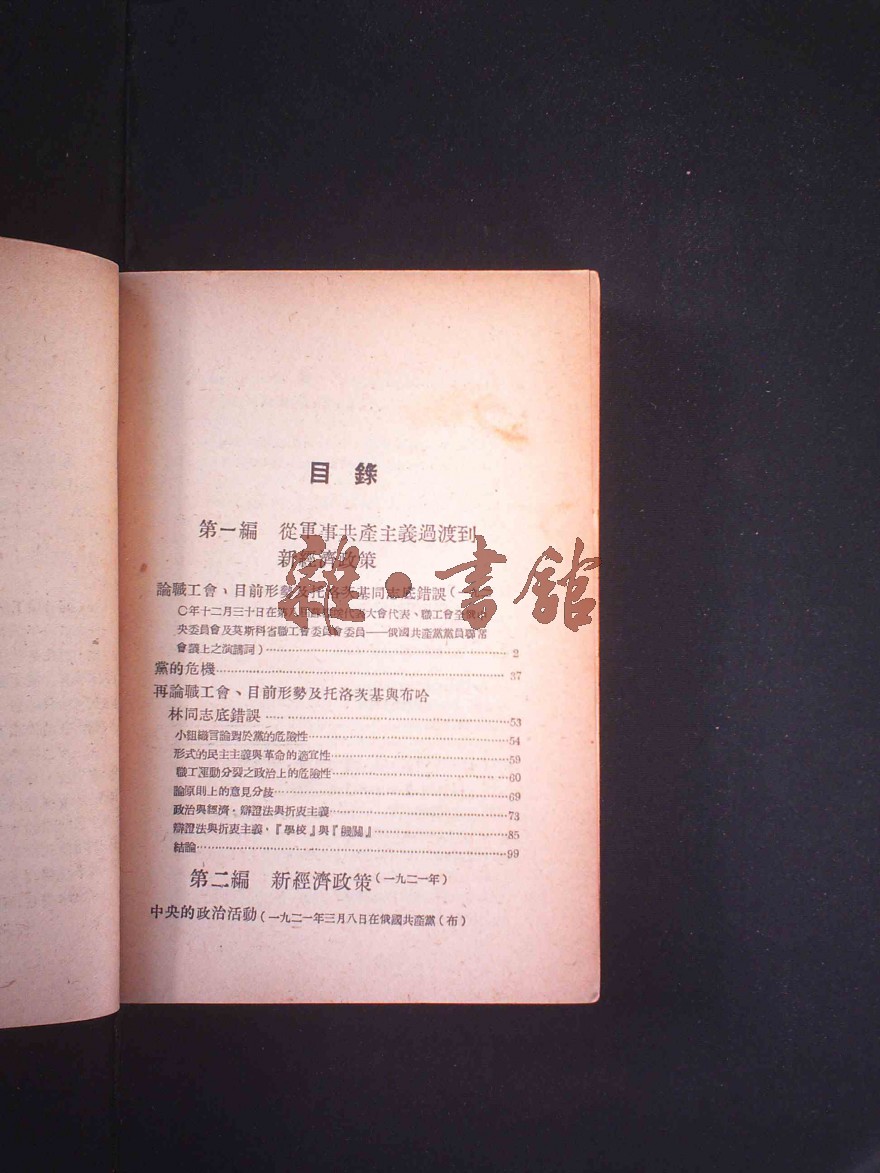 目錄
第一編 從軍事共產主義過渡到
新經濟政策
雜·書館
論職工會、目前形勢及托洛茨基同志底錯誤(一九二
〇年十二月三十日在第八屆蘇維埃代表大會代表、職工會全俄中
央委員會及莫斯科省職工會委員會委員——俄國共產黨黨員聯席
會議上之演講詞)⋯⋯2
黨的危機⋯⋯37
再論職工會、目前形勢及托洛茨基與布哈
林同志底錯誤⋯⋯53
小組織言論對於黨的危險性⋯⋯54
形式的民主主義與革命的適宜性⋯⋯59
職工運動分裂之政治上的危險性⋯⋯60
論原則上的意見分歧⋯⋯69
政治與經濟·辯證法與折衷主義⋯⋯73
辯證法與折衷主義·『學校』與『機關』⋯⋯85
結論⋯⋯99
第二編 新經濟政策(一九二一年)
中央的政治活動(一九二一年三月八日在俄國共產黨(布)